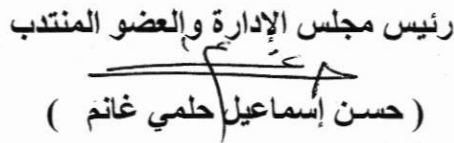 رئيس مجلس الإدارة والعضو المنتدب
( حسن إسماعيل حلمي غانم )